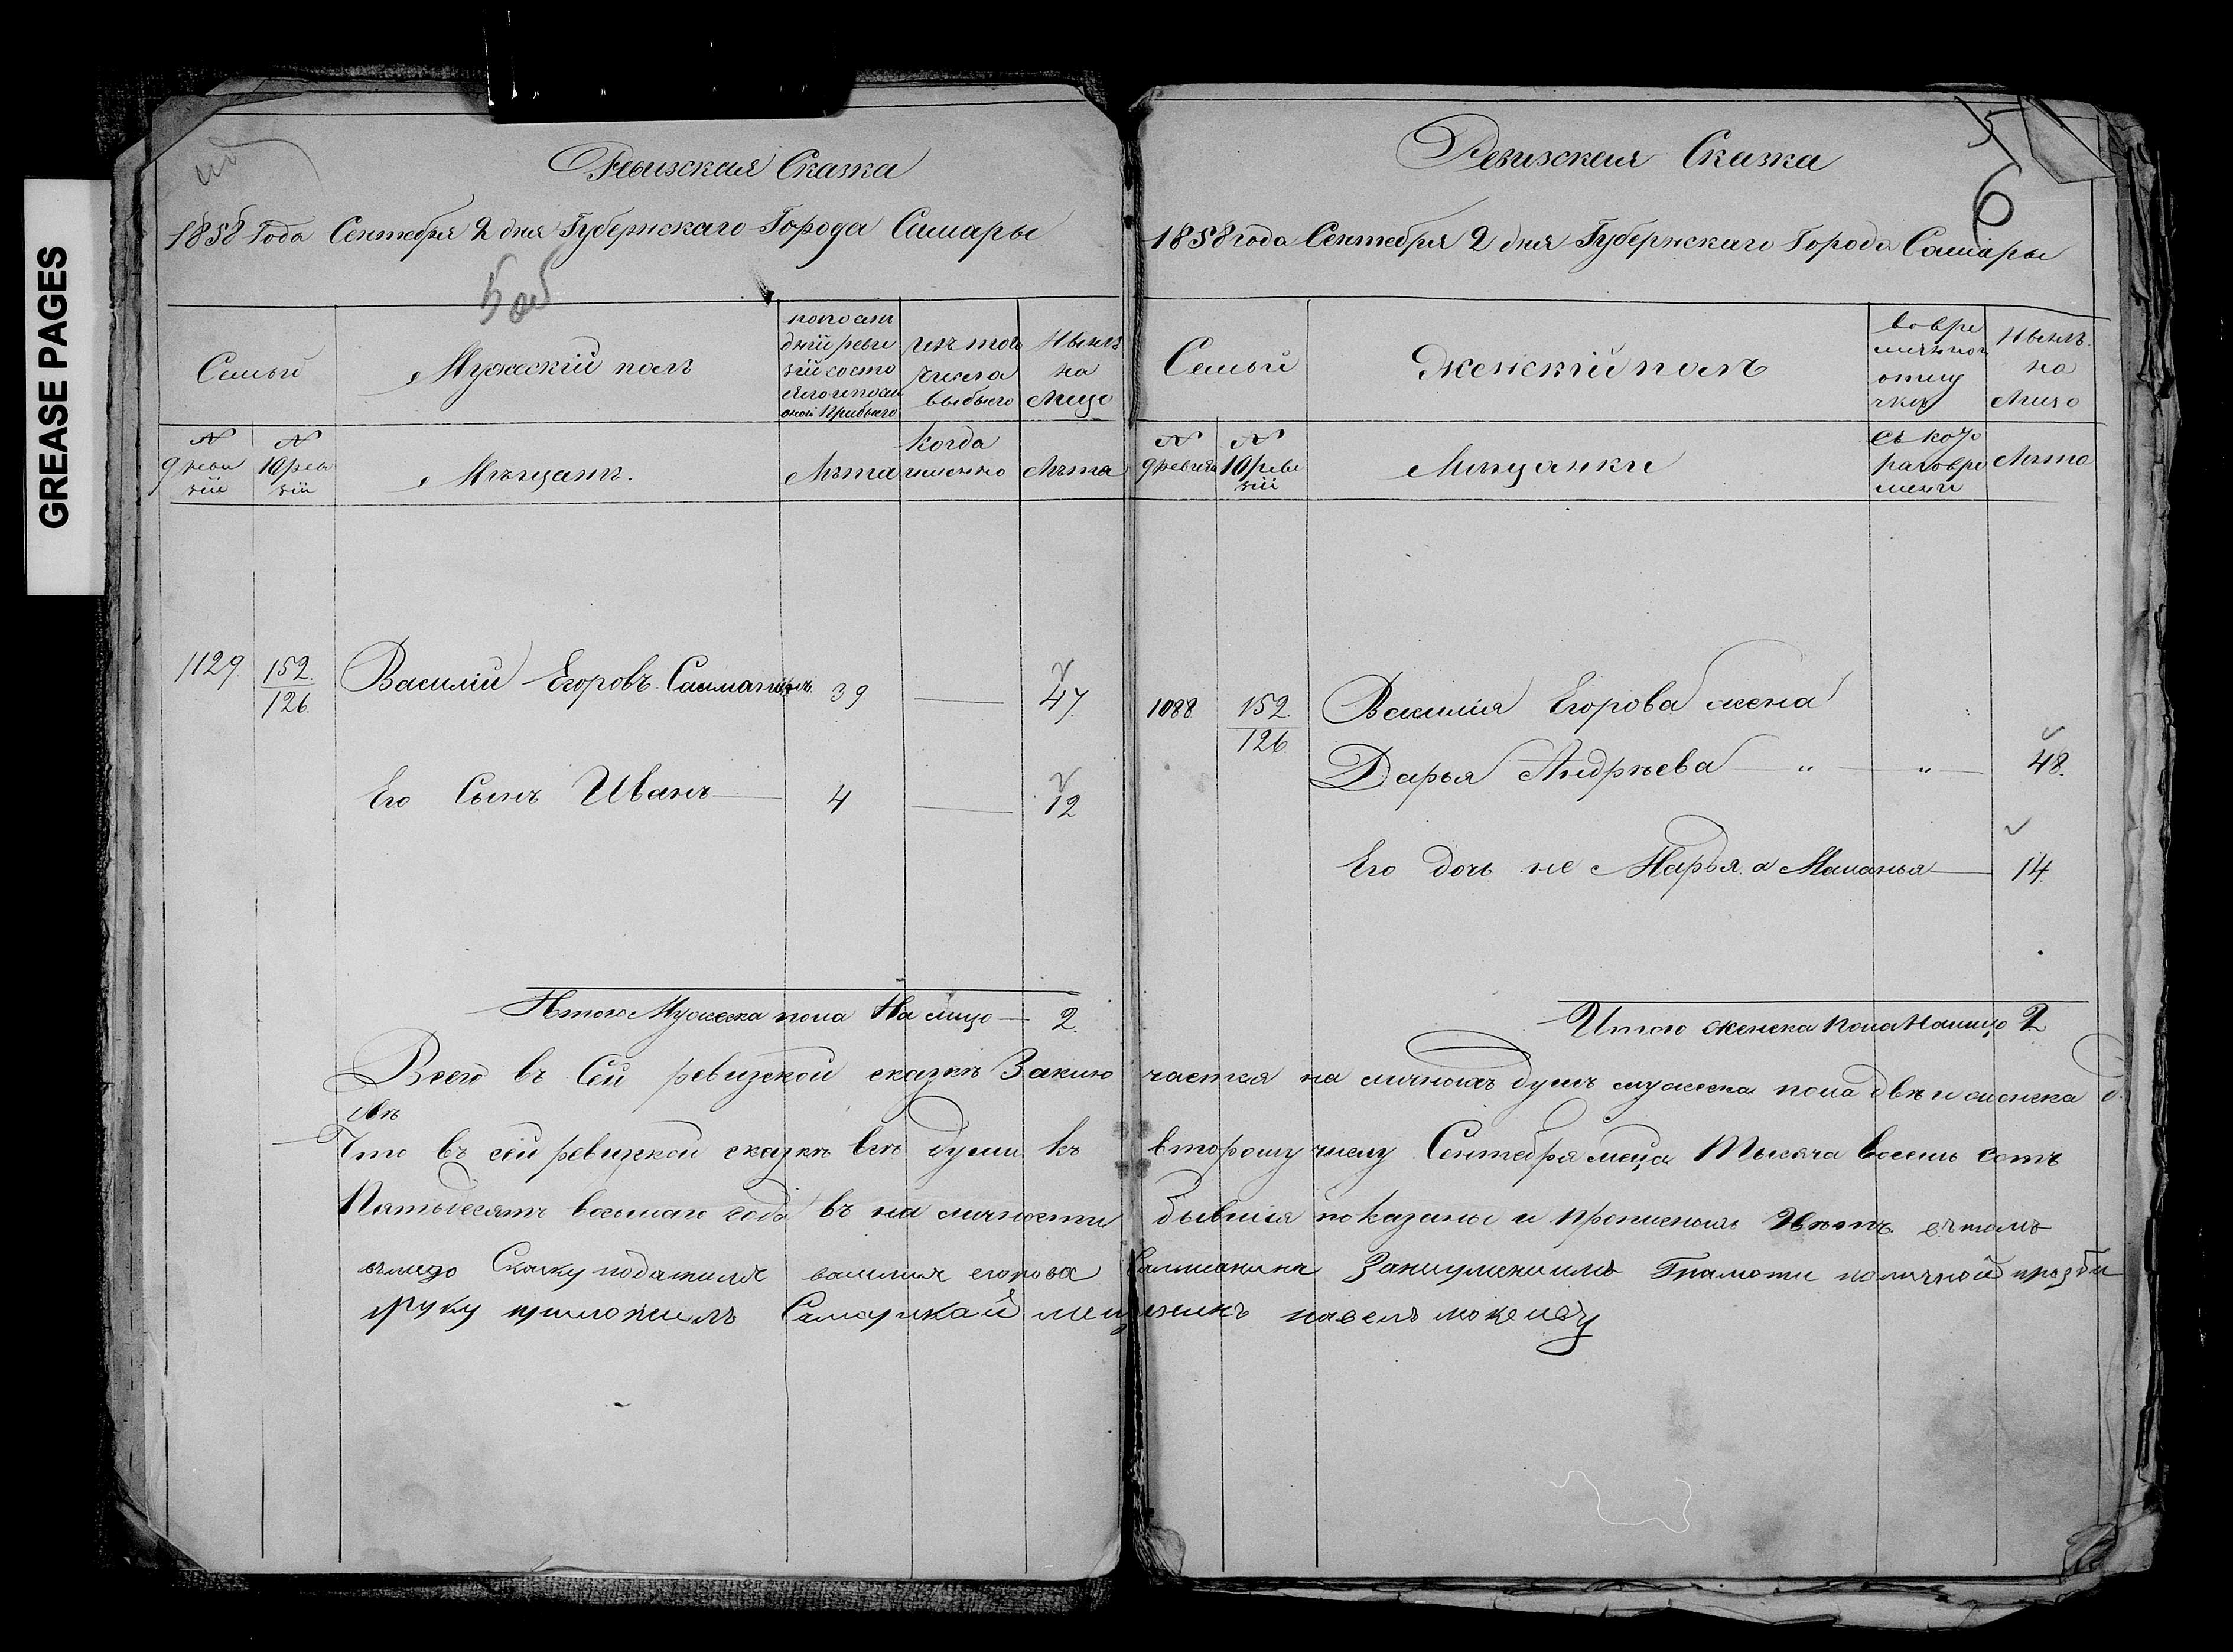 GREASE PAGES
Ревизская Сказка
1858 Года Сентября 2 дня Губернскаго Города Самары
5 об
Семьи
Мужескій полъ
по посл
дній реви
зіи состо
яло и посл
оной прибыло
изъ того
числа
выбыло
Нынѣ
на
Лицо
N
9 реви
зіи
N
10 реви
зіи
Мѣщанъ.
Лѣта
Когда
именно
Лѣта
1129
152
126
Василій Егоровъ
39
47
Его Сынъ Иванъ
4
12
Итого Мужеска пола На лицо 2
Ревизская Сказка
6
1858 года Сентября 2 дня Губернскаго Города Самары
Семьи
Женскій полъ
во вре
отлу
чкѣ
Нынѣ
на
Лицо
N
9 ревизіи
N
10 реви
зіи
Мѣщанки
Съ кото
раго вре
мени
Лѣта
1088
152
126
Василія Егорова жена
Дарья Андрѣева 48
Его дочь не Марья а Маланья 14
Итого женска пола На лицо 2
Всего въ Сей ревизской сказкѣ Заключается на личнохъ душъ мужеска пола двѣ и женска
двѣ
Что въ сей ревизской сказкѣ всѣ души къ второму числу Сентября меца Тысяча восемь сотъ
Пятьдесятъ восьмаго года въ на личности бывшія показаны и прописныхъ Нѣтъ въ томъ
Скаску подателя василья егорова Занеумениемъ Грамоти поличной прозби
руку приложилъ Самарской мещенинъ павелъ